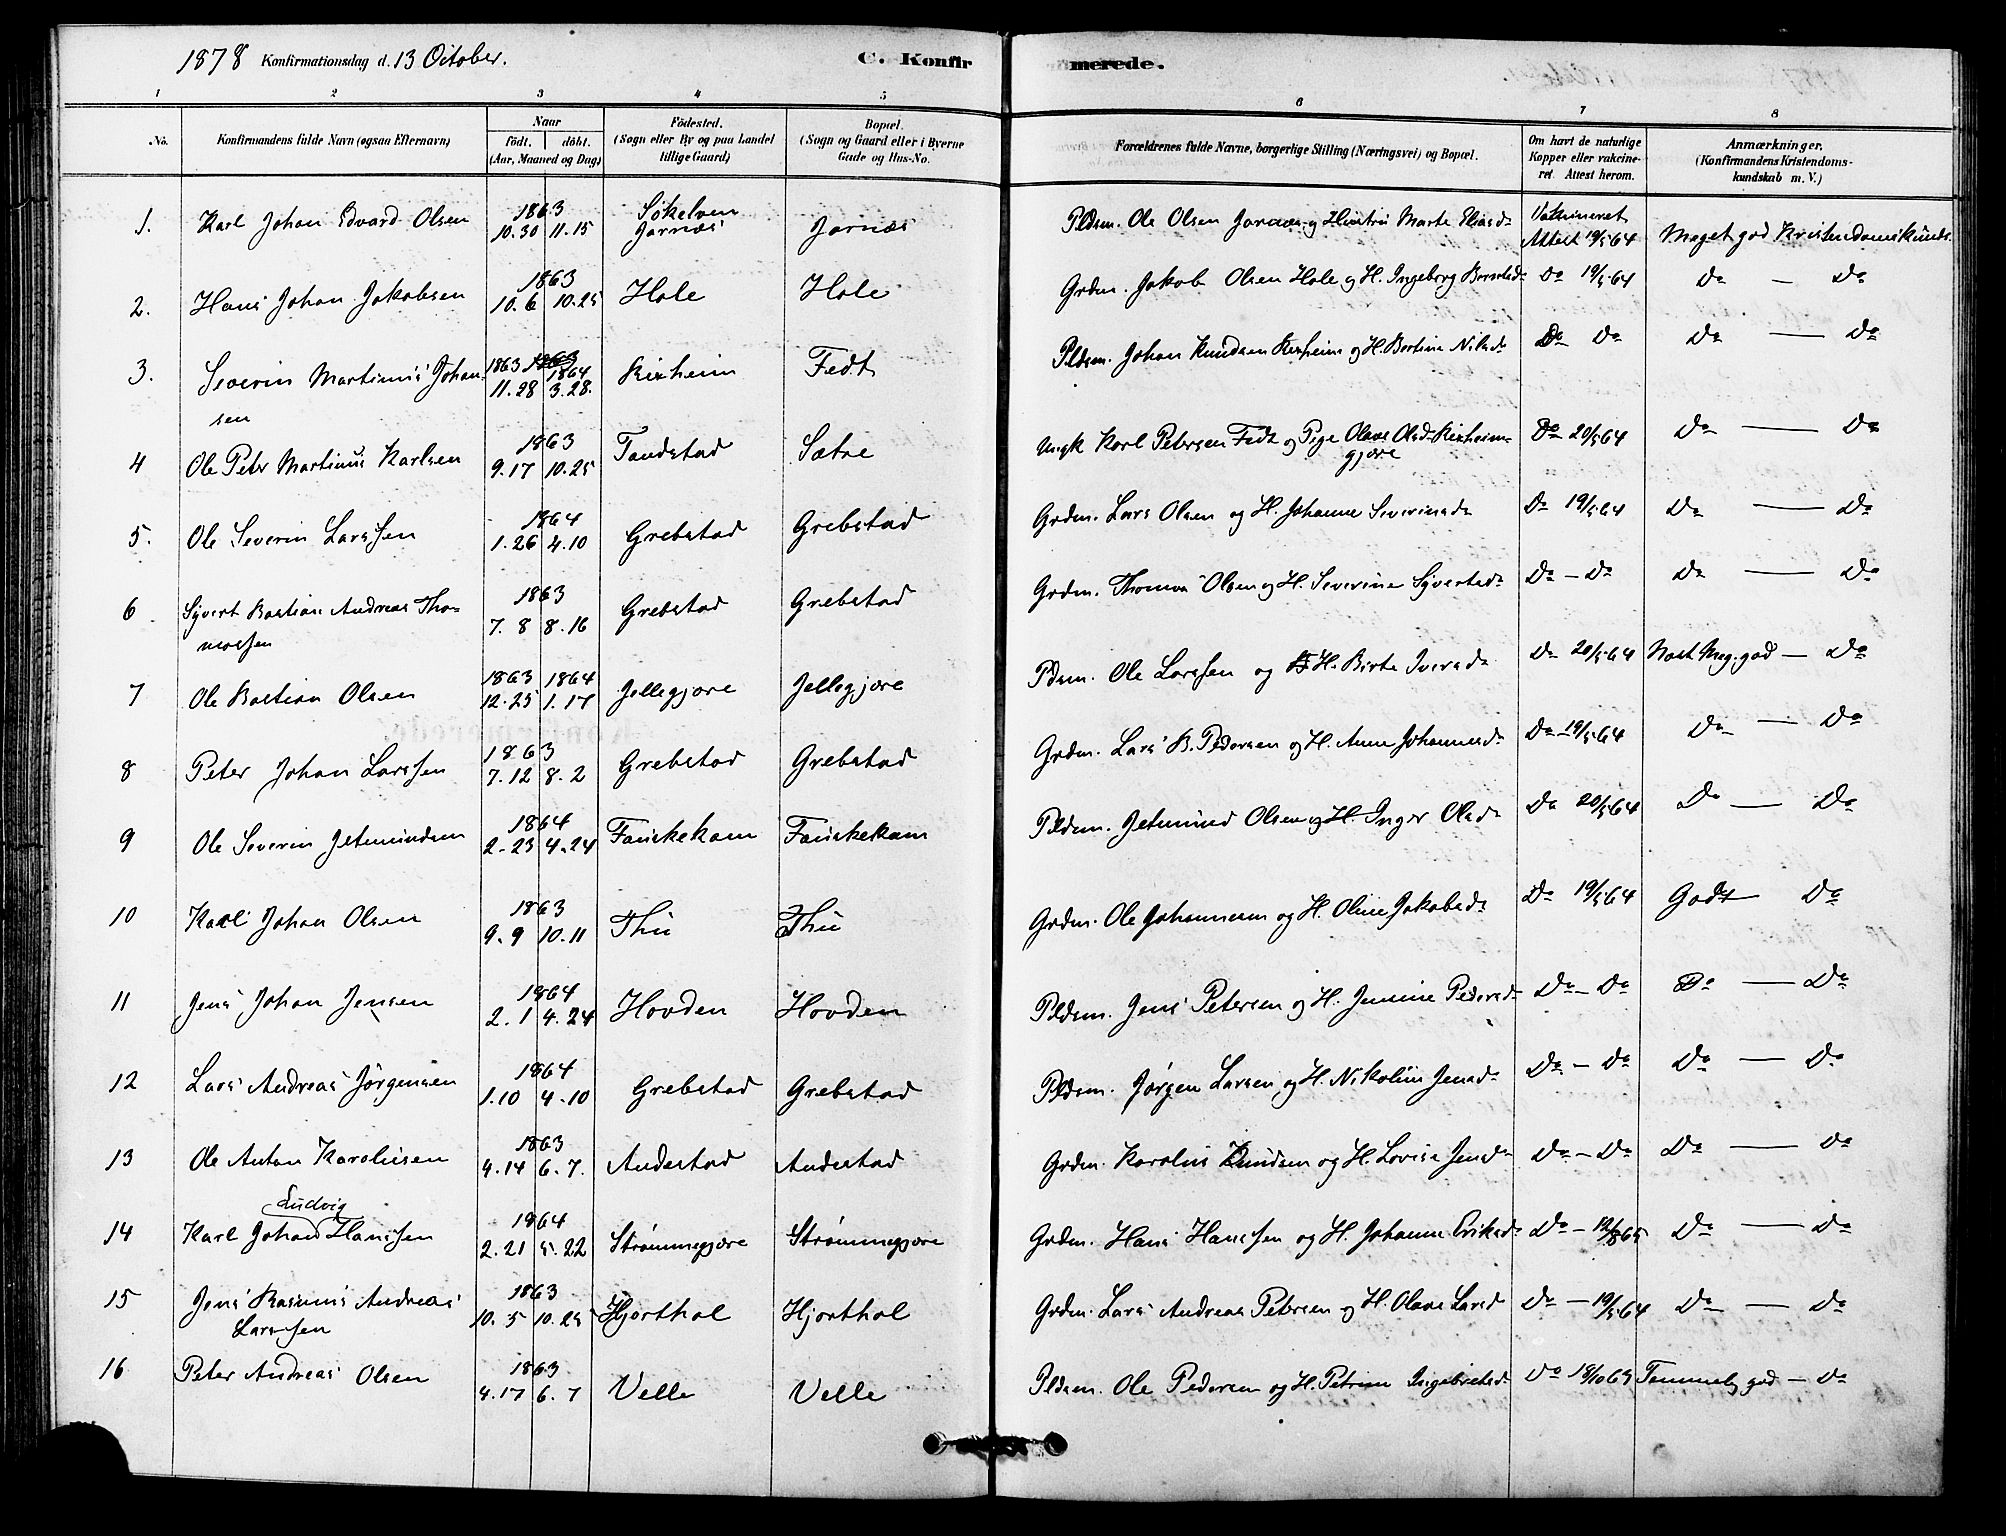 1878 Konfirmationsdag d. 13 October. C. Konfir merede.
1 2 3 4 5 6 7 8
No. Konfirmandens fulde Navn (ogsaa Efternavn) Naar födt. döbt. (Aar, Maaned og Dag) Födested. (Sogn eller By og paa Landet tillige Gaard) Bopæl. (Sogn og Gaard eller i Byerne Gade og Hus-No. Forældrenes fulde Navne, borgerlige Stilling (Næringsvei) og Bopæl. Om havt de naturlige Kopper eller vakcineret. Attest herom. Anmærkninger. (Konfirmandens Kristendomskundskab m. V.)
1. Karl Johan Edvard Olsen 1863 10.30 11.15 Søkelven Jarnæs Jarnæs Pldsm. Ole Olsen Jarnæs og Hustru Marte Eliasd. Vakcineret Attest 19/5 64 Meget god Kristendomskunds.
2. Hans Johan Jakobsen 1863 10.6 10.25 Hole Hole Grdm. Jakob Olsen Hole og H. Ingeborg Do 19/5 64 Do — Do
3. Severin Martinus Johansen 1863 11.28 1863 1864 3.28. Kirheim Fedt Pldsm. Johan Knudsen Kirheim og H. Bertine Nilsd. Do Do Do — Do
4 Ole Peter Martinus Karlsen 1863 9.17 10.25 Tandstad Sætre Ungk Karl Petersen Fedt og Pige Olave Olsd. Kirheimgjære Do 20/5 64 Do — Do
5. Ole Severin Larssen 1864 1.26 4.10 Grebstad Grebstad Grdm. Lars Olsen og H. Johanne Severinsd. Do 19/5 64 Do — Do
6 Sivert Bastian Andreas Thomassen 1863 7.8 8.16 Grebstad Grebstad Grdm. Thomas Olsen og H. Severine Syvertsd. Do — Do Do — Do
7 Ole Bastian Olsen 1863 12.25 1864 1.17 Jellegjære Jellegjære Pldsm. Ole Larssen og H. Birte Iversd. Do 20/5 64 Næst Meg. god — Do
8 Peter Johan Larssen 1863 7.12 8.2 Grebstad Grebstad Grdm. Lars B. Pedersen og H. Anne Johannesd. Do — 19/5 64 Do — Do
9 Ole Severin Jetmundsen 1864 2.23 4.24 Fauskekam Fauskekam Pldsm. Jetmund Olsen og H. Inger Olsd. Do 20/5 64 Do — Do
10 Karl Johan Olsen 1863 9.9 10.11 Thu Thu Grdm. Ole Johannesen og H. Oline Jakobsd. Do 19/5 64 Godt Do
11 Jens Johan Jensen 1864 2.1 4.24 Hovden Hovden Pldsm. Jens Petersen og H. Jensine Pedersd. Do — Do Do — Do
12 Lars Andreas Jørgensen 1864 1.10 4.10 Grebstad Grebstad Pldsm. Jørgen Larsen og H. Nikoline Jensd. Do — Do Do — Do
13 Ole Anton Karolusen 1863 4.14 6.7. Andestad Andestad Grdm. Karolus Knudsen og H. Lovise Jensd. Do — Do Do — Do
14 Karl Johan Ludvig Hanssen 1864 2.21 5.22 Strømmegjære Strømmegjære Grdm. Hans Hanssen og H. Johanne Eriksd. Do — 12/8 65 Do — Do
15 Jens Rasmus Andreas Larssen 1863 10.5 10.25 Hjorthol Hjorthol Grdm. Lars Andreas Petersen og H. Olave Larsd Do — 19/5 64 Do — Do
16 Peter Andreas Olsen 1863 4.17 6.7 Velle Velle Pldsm. Ole Pedersen og H. Petrine Ingebretsd. Do 18/10 63 Temmelig god — Do